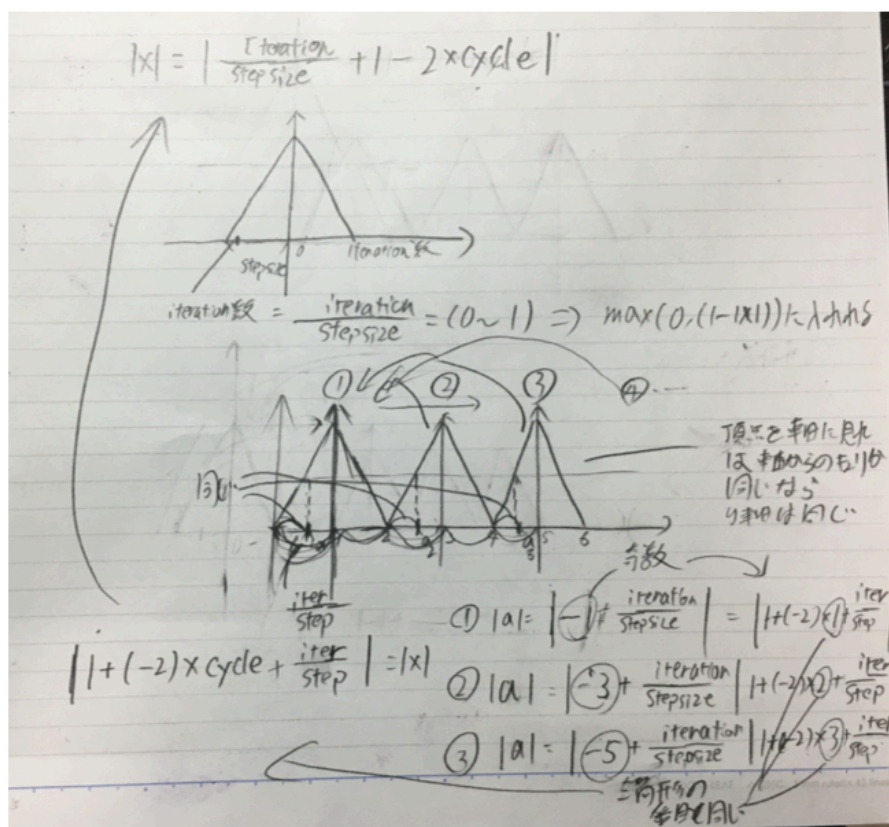 |x| = | Iteration/stepsize + 1 - 2×cycle |
0
stepsize
iteration数
iteration数 = iteration/stepsize = (0~1) => max(0,(1-|x|))に入れれる
① ② ③ ④ ...
頂点を軸に見れ
ば 軸からの
同じなら
y軸は同じ
同じ
2 4 5 6
iter/step
奇数
① |a| = | -1 + iteration/stepsize | = | 1+(-2)×1 + iter/step
| 1+(-2)×cycle + iter/step | = |x|
② |a| = | -3 + iteration/stepsize | 1+(-2)×2 + iter/step
③ |a| = | -5 + iteration/stepsize | 1+(-2)×3 + iter/step